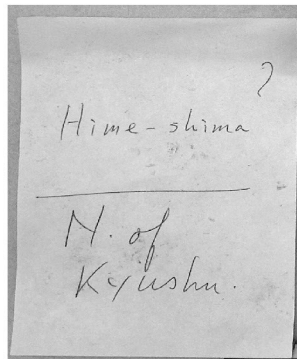 ?
Hime-shima
N. of
Kyushu.